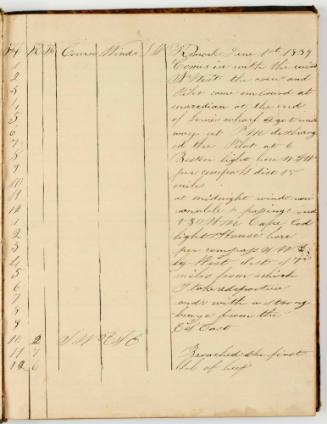 H K F Course Winds LW Remark June 1st 1839
1 Comes in with the wind
2 N West the crew and
3 Pilot came on board at
4 meredian at the end
5 of Lewis wharf & got under
6 way at PM discharg
7 ed the Pilot at 6
8 Boston light bore
9 per compass dist 15
10 miles
11 at midnight winds
12 & passing
1 Cape Cod
2 light House bore
3 per compass
4 by West dist of
5 miles from which
6 I take departure
7 ends with a strong
8 breeze from the
9 East
10 2
11 7 Broached the first
12 6 bbl of beef